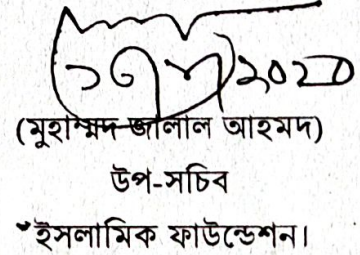 (মুহাম্মদ জালাল আহমদ)
উপ-সচিব
ইসলামিক ফাউন্ডেশন।